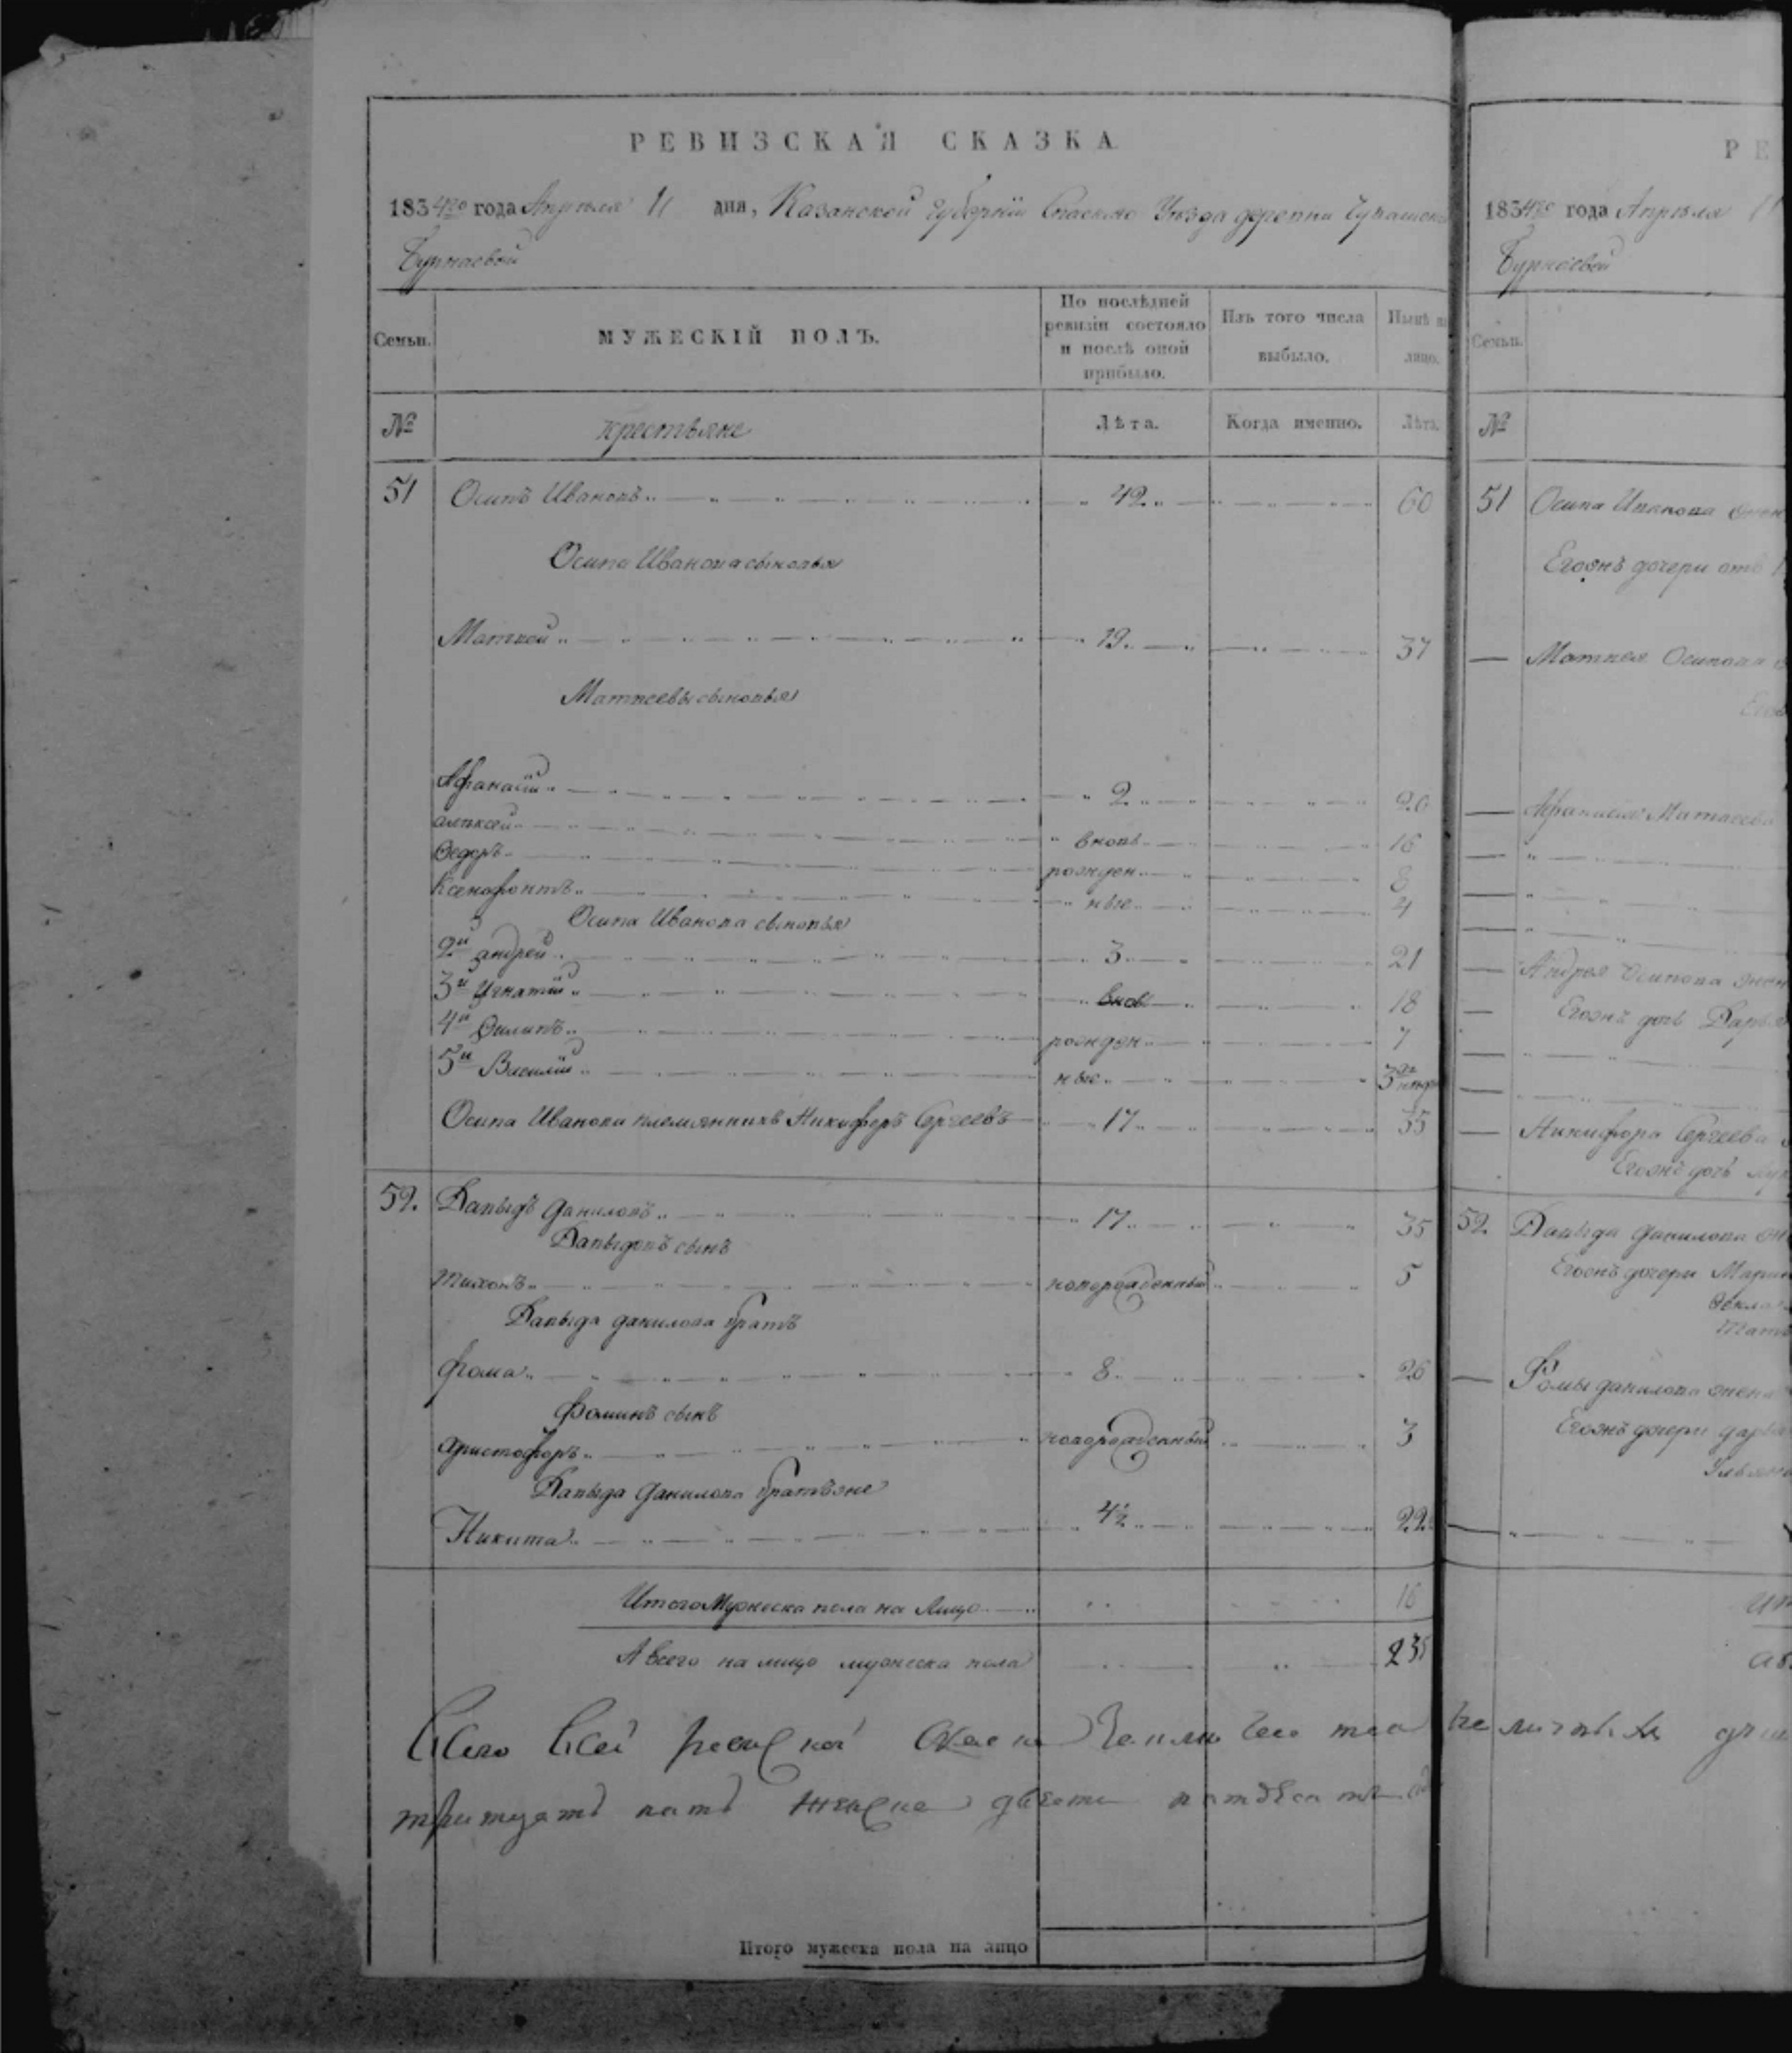 РЕВИЗСКАЯ СКАЗКА
1834го года Апреля 11 дня, Казанской Губернии Спаского Уезда деревни Чувашской
Бурнаевой
Семьи.
МУЖЕСКІЙ ПОЛЪ.
По послѣдней ревизіи состояло и послѣ оной прибыло.
Изъ того числа выбыло.
Нынѣ на лицо.
№ крестьяне Лѣта. Когда именно. Лѣта.
51 Осипъ Ивановъ 42 60
Осипа Иванова сыновья
Матвей 19 37
Матвеевы сыновья
Афанасий 2 20
алексей вновь 16
Федоръ рожден 8
Ксенофонтъ ные 4
Осипа Иванова сыновья
2й андрей 3 21
3й Игнатий внов 18
4й Филипъ рожден 7
5й Василий ные 3
Осипа Иванова племянникъ Никифоръ Сергеевъ 17 35
52. Давыдъ Даниловъ 17 35
Давыдовъ сынъ
Тихонъ новорожденный 5
Давыда данилова братъ
Фома 8 26
Фоминъ сынъ
Христофоръ новорожденный 3
Давыда Данилова братьяне
Никита 4½ 22
Итого Мужеска пола на Лицо 16
А всего на лицо мужеска пола 235
Всего всей
тритцать пять женска двести пятдесят
Итого мужеска пола на лицо
РЕ
1834го года Апреля 11
Бурнаевой
Семьи.
№
51 Осипа Иванова
Егожъ дочери отъ
Матвея Осипова
Афанасия Матвеева
Андрея Осипова жена
Егожъ дочь Дарья
Никифора Сергеева
Егожъ дочь
52 Давыда Данилова
Егожъ дочери
Фомы данилова жена
Егожъ дочери дарья